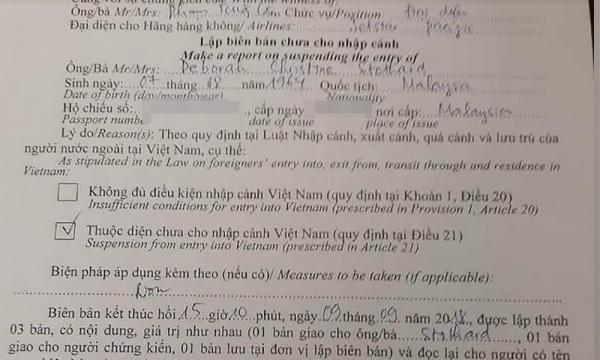 Ông/bà Mr/Mrs: Chức vụ/Position: Đại diện
Đại diện cho Hãng hàng không/ Airlines: Jetstar Pacific
Lập biên bản chưa cho nhập cảnh
Make a report on suspending the entry of
Ông/Bà Mr/Mrs: Deborah Christine Stothard
Sinh ngày: 07 tháng 08 năm 1964 Quốc tịch: Malaysia
Date of birth (day/month/year) Nationality
Hộ chiếu số: , cấp ngày nơi cấp: Malaysia
Passport number date of issue place of issue
Lý do/Reason(s): Theo quy định tại Luật Nhập cảnh, xuất cảnh, quá cảnh và lưu trú của
người nước ngoài tại Việt Nam, cụ thể:
As stipulated in the Law on foreigners' entry into, exit from, transit through and residence in
Vietnam:
Không đủ điều kiện nhập cảnh Việt Nam (quy định tại Khoản 1, Điều 20)
Insufficient conditions for entry into Vietnam (prescribed in Provision 1, Article 20)
Thuộc diện chưa cho nhập cảnh Việt Nam (quy định tại Điều 21)
Suspension from entry into Vietnam (prescribed in Article 21)
Biện pháp áp dụng kèm theo (nếu có)/ Measures to be taken (if applicable):
Biên bản kết thúc hồi 15 giờ 10 phút, ngày 09 tháng 09 năm 2018, được lập thành
03 bản, có nội dung, giá trị như nhau (01 bản giao cho ông/bà Stothard, 01 bản
giao cho người chứng kiến, 01 bản lưu tại đơn vị lập biên bản) và đọc lại cho người có tên